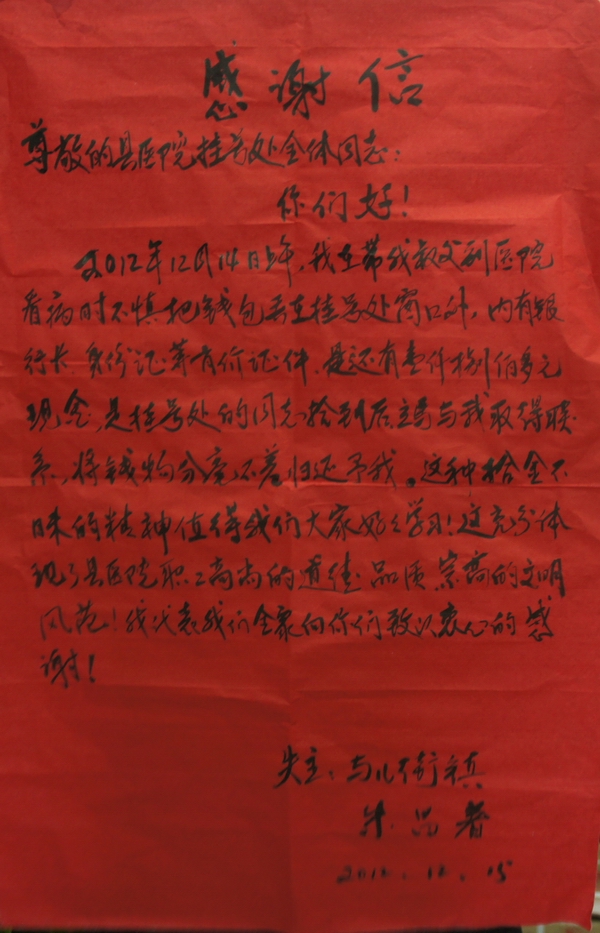 感谢信
尊敬的县医院挂号处全体同志:
你们好!
2012年12月14日上午,我在带我叔父到医院
看病时不慎把钱包丢在挂号处窗口外,内有银
行卡、身份证等有价证件,还有壹仟捌佰多元
现金,是挂号处的同志拾到后主动与我取得联
系,将钱物分毫不差归还予我。这种拾金不
昧的精神值得我们大家好好学习!这充分体
现了县医院职工高尚的道德品质崇高的文明
风范!我代表我们全家向你们致以衷心的感
谢!
失主:与儿街镇
朱品春
2012.12.15